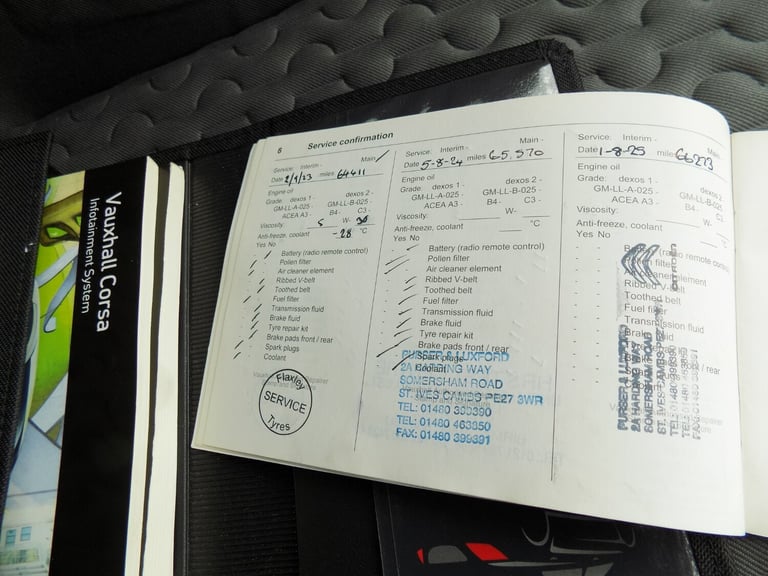 Vauxhall Corsa
Infotainment System
6 Service confirmation
Service: Interim - Main
Date 64411
Engine oil
Grade: dexos 1 - dexos 2 -
GM-LL-A-025 - GM-LL-B-025 -
ACEA A3 - B4 - C3 -
Viscosity: 5 W- 30
Anti-freeze, coolant -28 °C
Yes No
Battery (radio remote control)
Pollen filter
Air cleaner element
Ribbed V-belt
Toothed belt
Fuel filter
Transmission fluid
Brake fluid
Tyre repair kit
Brake pads front / rear
Spark plugs
Coolant
Flaxley
SERVICE
Tyres
Service: Interim - Main -
Date 5-8-24 miles 65,570
Engine oil
Grade: dexos 1 - dexos 2 -
GM-LL-A-025 - GM-LL-B-025 -
ACEA A3 - B4 - C3 -
Viscosity: W-
Anti-freeze, coolant °C
Yes No
Battery (radio remote control)
Pollen filter
Air cleaner element
Ribbed V-belt
Toothed belt
Fuel filter
Transmission fluid
Brake fluid
Tyre repair kit
Brake pads front / rear
Spark plugs
Coolant
PURSER & LUXFORD
2A HARDING WAY
SOMERSHAM ROAD
ST. IVES CAMBS PE27 3WR
TEL: 01480 399390
TEL: 01480 463850
FAX: 01480 399391
Service: Interim - Main -
Date 1-8-25 miles 66273
Engine oil
Grade: dexos 1 - dexos 2 -
GM-LL-A-025 - GM-LL-B-025 -
ACEA A3 - B4 - C3 -
Viscosity: W-
Anti-freeze, coolant
Yes No
(radio remote control)
filter
element
Ribbed V-belt
Toothed belt
Fuel filter
Transmission fluid
Brake fluid
/ rear
CITROEN
PURSER &
2A HARDING WAY
SOMERSHAM ROAD
ST. IVES CAMBS PE27
TEL: 01480 399390
TEL: 01480 463850
FAX: 01480 399391